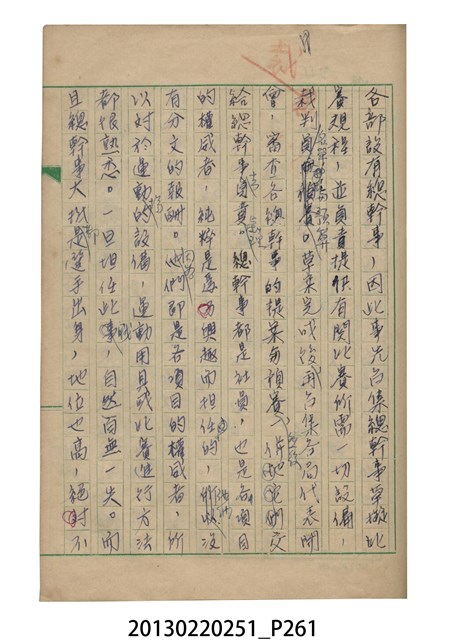 各部設有總幹事，因此事先召集總幹事草擬比
賽規程，並負責提供有關比賽所需一切設備，
裁判員名單和預算。草案完成後再召集各局代表開
會，審查各總幹事的提案和預算，
給總幹事去負責辦理。總幹事都是社員，也是各項目
的權威者，純粹是為興趣而担任的，沒
有分文的報酬。他們即是各項目的權威者，所
以对於運動的設備，運動用具或比賽進行方法
都很熟悉。一旦担任此職，自然百無一失。而
且總幹事大都是選手出身，地位也高，絕对不
20130220251_P261